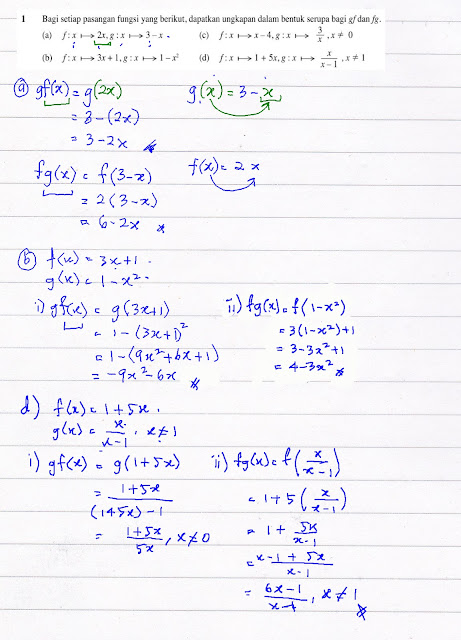 1 Bagi setiap pasangan fungsi yang berikut, dapatkan ungkapan dalam bentuk serupa bagi gf dan fg.
(a) f : x ↦ 2x, g : x ↦ 3 – x (c) f : x ↦ x – 4, g : x ↦ 3/x, x ≠ 0
(b) f : x ↦ 3x + 1, g : x ↦ 1 – x² (d) f : x ↦ 1 + 5x, g : x ↦ x/(x – 1), x ≠ 1
(a) gf(x) = g(2x) g(x) = 3 - x
= 3 - (2x)
= 3 - 2x
fg(x) = f(3-x) f(x) = 2x
= 2(3-x)
= 6-2x
(b) f(x) = 3x+1
g(x) = 1-x²
i) gf(x) = g(3x+1) ii) fg(x) = f(1-x²)
= 1-(3x+1)² = 3(1-x²)+1
= 1-(9x²+6x+1) = 3-3x²+1
= -9x²-6x = 4-3x²
d) f(x) = 1+5x
g(x) = x/(x-1), x≠1
i) gf(x) = g(1+5x) ii) fg(x) = f(x/(x-1))
= (1+5x)/((1+5x)-1) = 1+5(x/(x-1))
= (1+5x)/5x, x≠0 = 1+ 5x/(x-1)
= (x-1+5x)/(x-1)
= (6x-1)/(x-1), x≠1